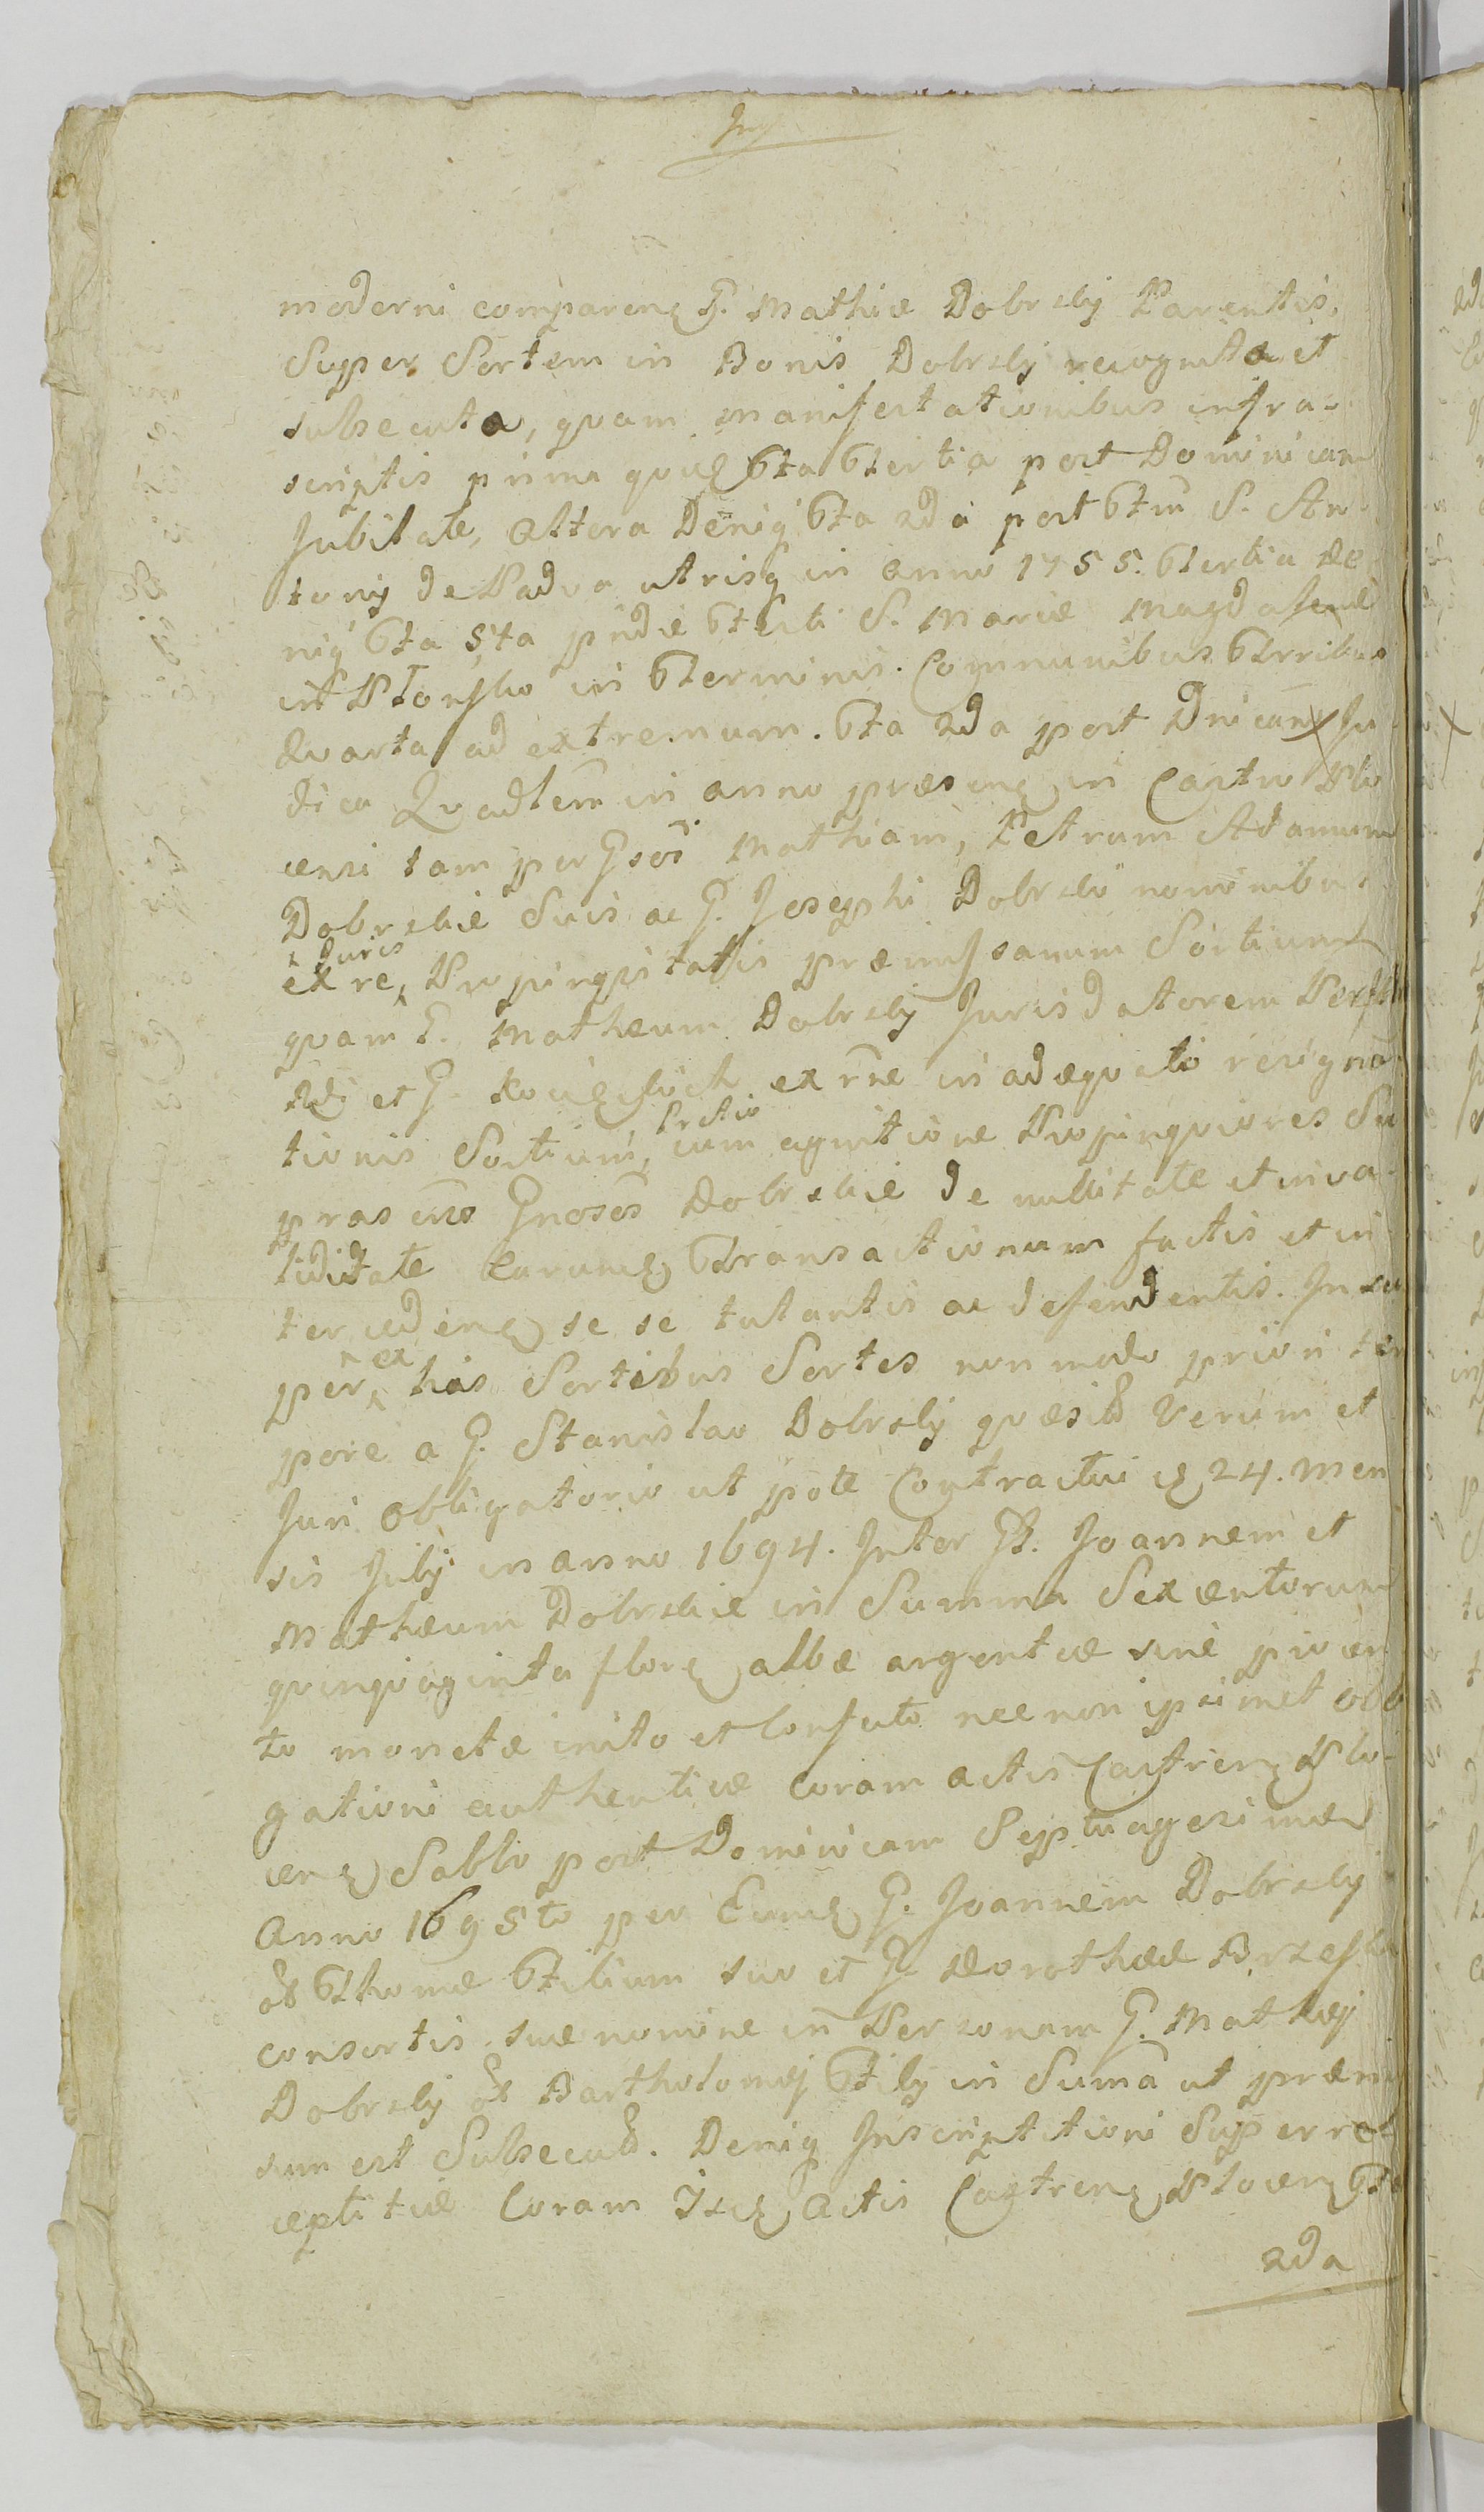 moderni comparen G. Mathiæ Dobrsky Parentis,
Super Sortem in Bonis Dobrsky recognita et
subsecuta, quam manifestationibus infra-
scriptis prima quid fta tertia post Dominicam
Jubilate, altera Deniq fta 2da post ftm S. An
tonij de Padua utrisq in anno 1755. tertia de
niq fta 5ta pridie festi S. Mariæ Magdalenæ
in Płonsko in terminis Communibus trribus
Quarta ad extremum. fta 2da post Dnicam Ju
dica Quadlem in anno præsenƷ in Castro Plo
censi tam per Gsos Mathiam, Petrum Adamum
Dobrskie Suis ac G. Josephi Dobrski nominibus
Juris
ex re Propinquitatis præmissarum Sortium
quam G. Mathæum Dobrsky Juris datorem
et G. ex rne inadæquato resigna
tionis Sortium, cum agnitione Propinquiores Su
præsens Gnosos Dobrskie de nullitate et inva
liditate earumƷ transactionum factis et in
tercedenƷ se se tutantis ac defendentis. Insu
ex
per his Sortibus Sortes non modo priori tem
pore a G. Stanislao Dobrsky quæsit Verum et
Juri obligatorio ut pote Contractui 24. men
sis July in anno 1694. Inter GG. Joannem et
Mathæum Dobrskie in Summa Sexcentorum
quinquaginta flor albæ argenteæ sine proven
to monetæ inito et confecto nec non ipsimet obli
gationi authenticæ coram actis CastrenƷ Plo-
cenƷ Sabbo post Dominicam Septuagesimæ
Anno 1695to per EumƷ G. Joannem Dobrsky
ol Thomæ filium suo et G. Dorotheæ
consortis suæ nomine in Personam G. Mathæj
Dobrsky ol Bartholomæj fily in Suma ut præmi
sum est Subsecut. Deniq Inscriptioni Super re
ceptitiæ Coram actis CastrenƷ PlocenƷ fta
2da